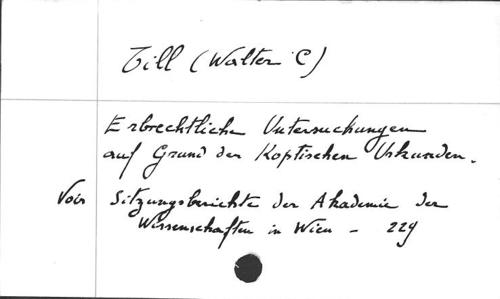 Till (Walter C)
Erbrechtliche Untersuchungen
auf Grund der Koptischen Urkunden.
Voir Sitzungsberichte der Akademie der
Wissenschaften in Wien - 229